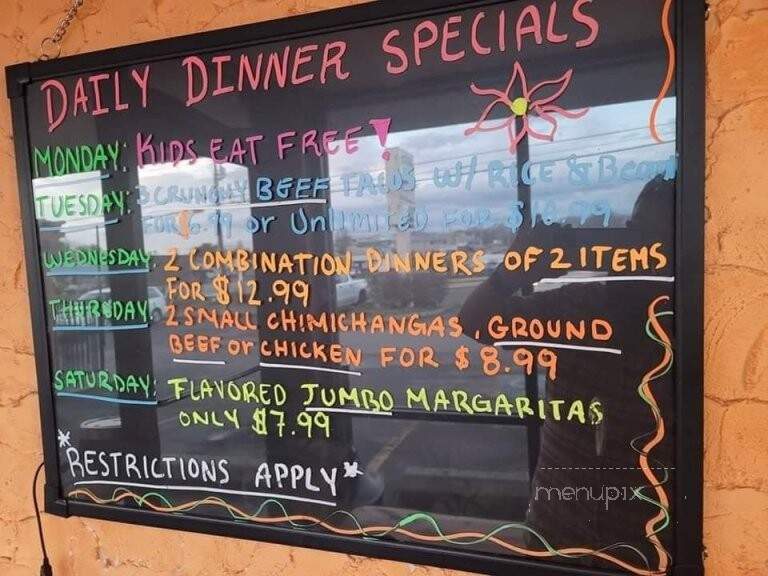 DAILY DINNER SPECIALS
MONDAY: KIDS EAT FREE!
TUESDAY: 3 CRUNCHY BEEF TACOS W/ RICE & Beans
FOR 6.99 or UnlimiTED FOR
WEDNESDAY: 2 COMBINATION DINNERS OF 2 ITEMS
FOR $12.99
THURSDAY: 2 SMALL CHIMICHANGAS, GROUND
BEEF or CHICKEN FOR $8.99
SATURDAY: FLAVORED JUMBO MARGARITAS
ONLY $7.99
*RESTRICTIONS APPLY*
menupix